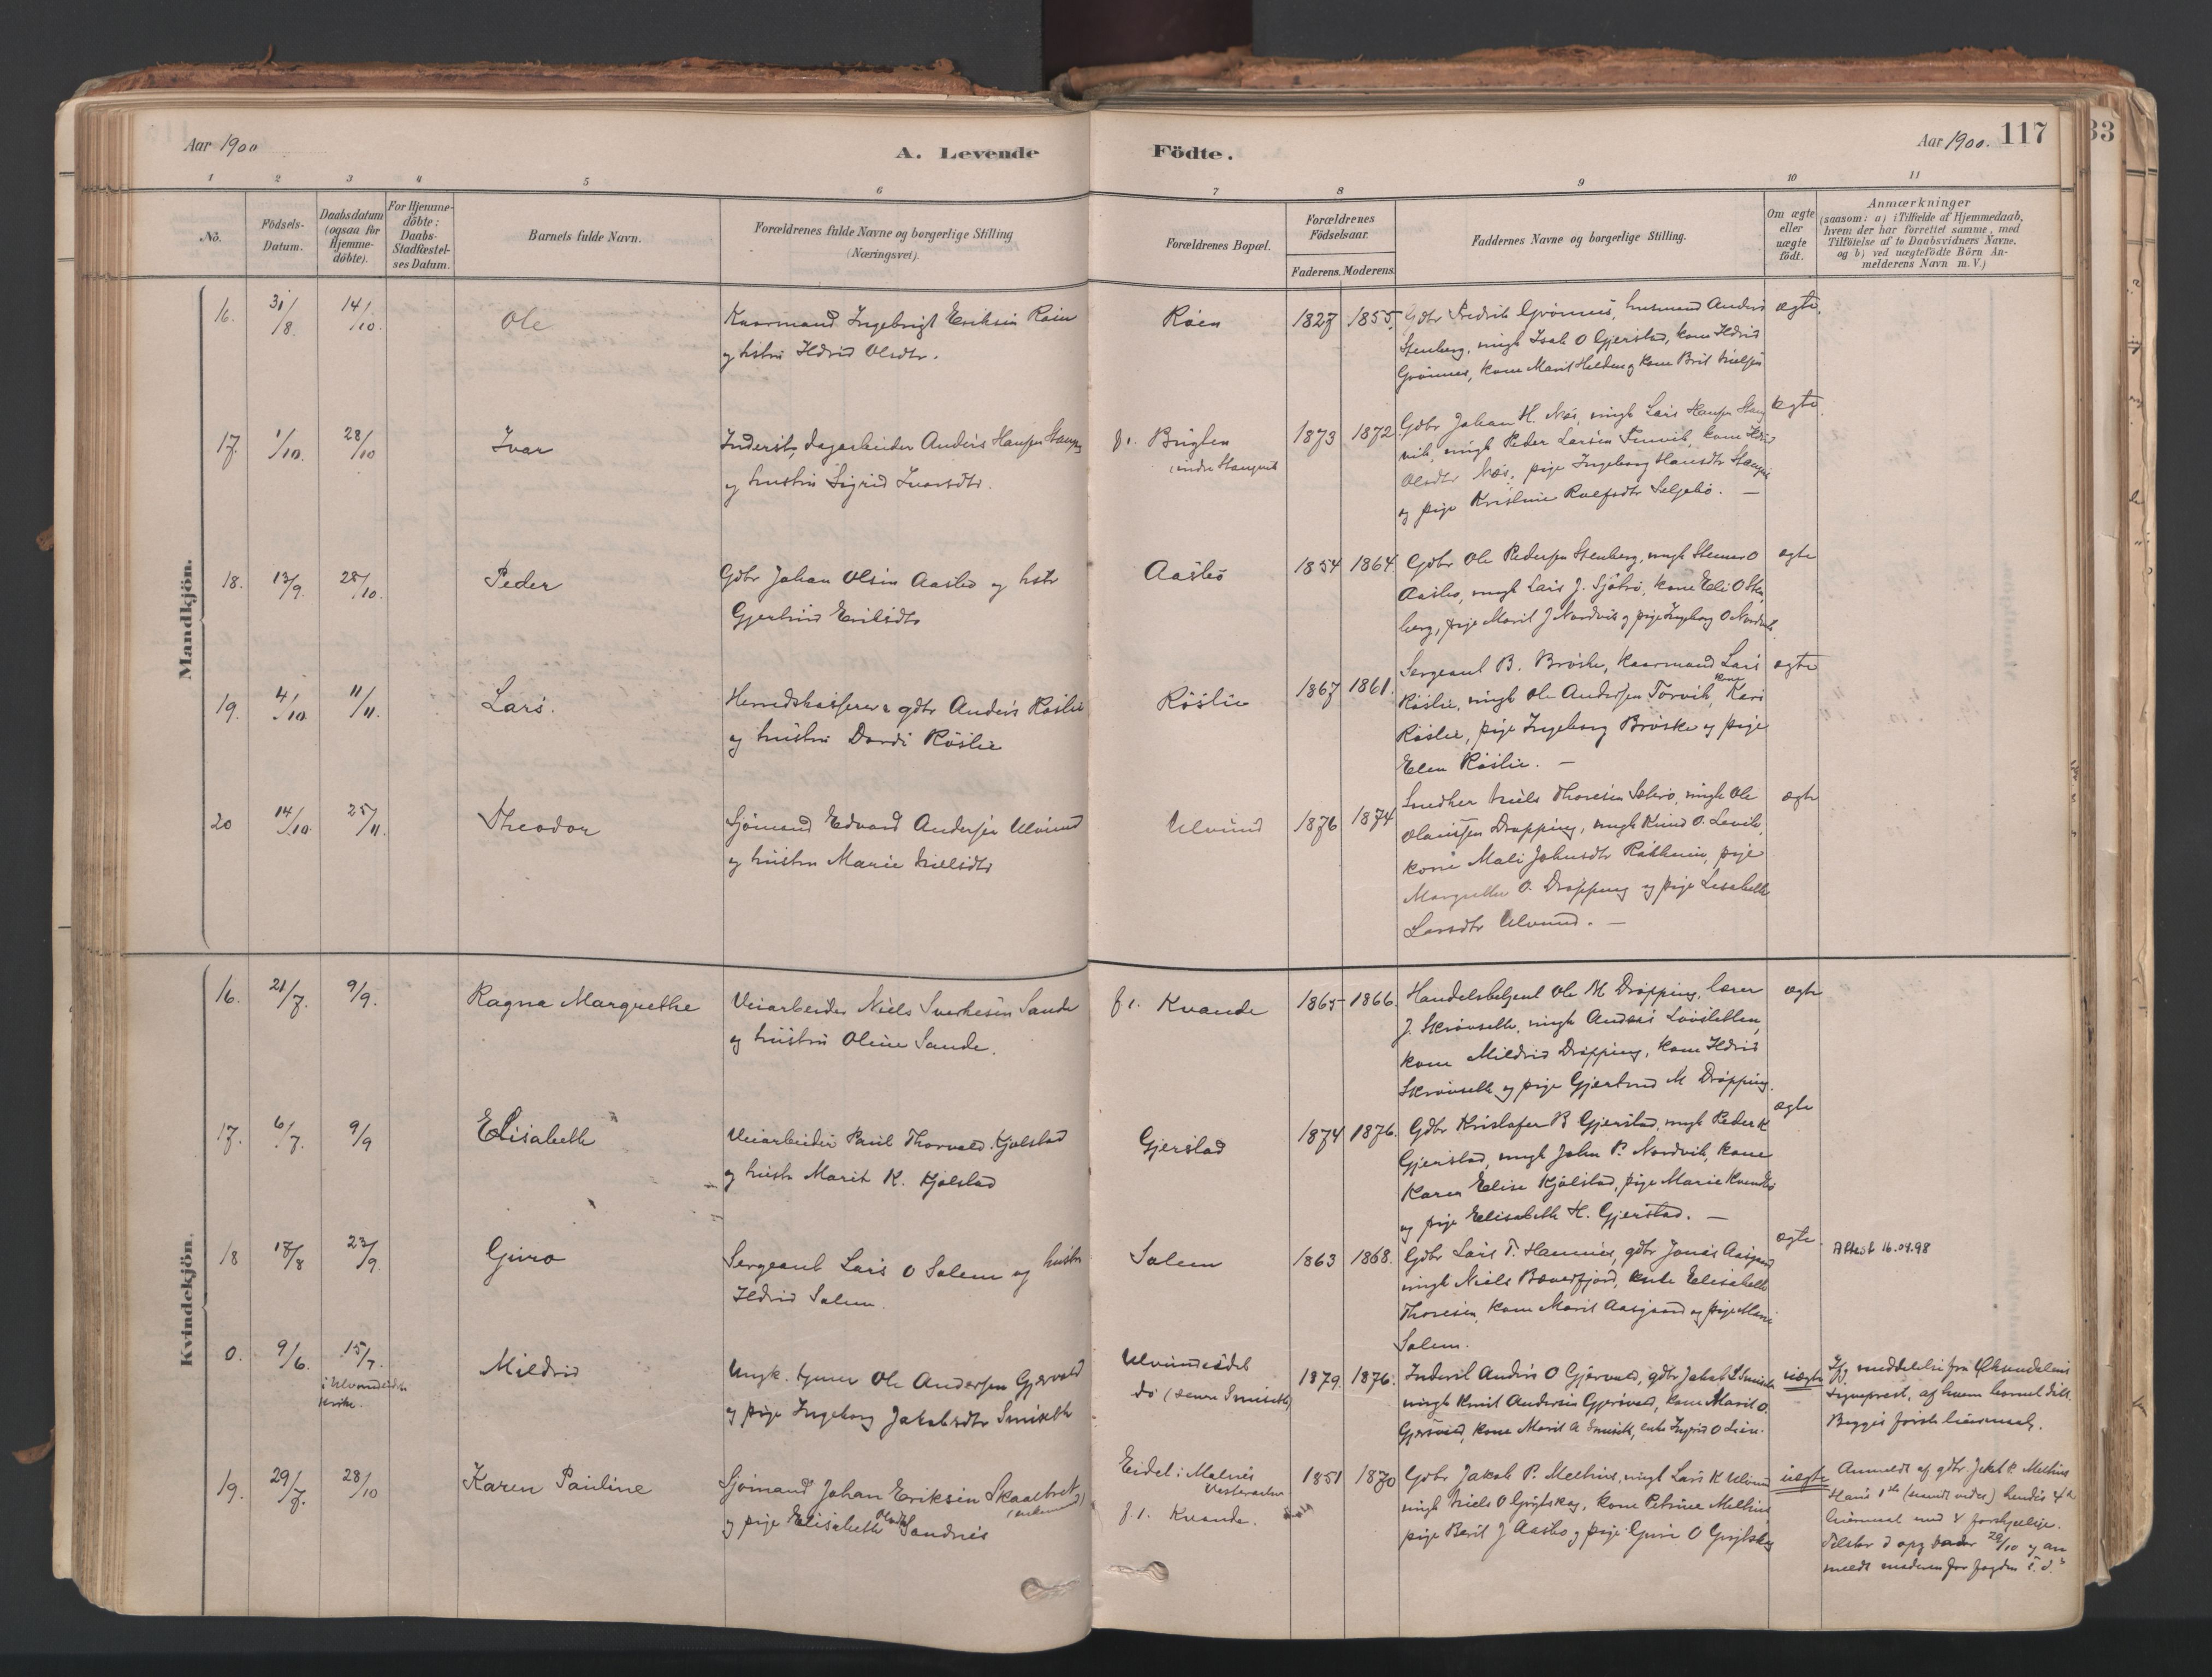 Aar 1900
A. Levende
Födte.
Aar 1900.
117
33
1 2 3 4 5 6 7 8 9 10 11
No.
Födsels-
Datum.
Daabsdatum
(ogsaa for
Hjemme-
döbte).
For Hjemme-
döbte:
Daabs-
Stadfæstel-
ses Datum.
Barnets fulde Navn.
Forældrenes fulde Navne og borgerlige Stilling
(Næringsvei).
Forældrenes Bopæl.
Forældrenes
Födselsaar.
Faderens. Moderens.
Faddernes Navne og borgerlige Stilling.
Om ægte
eller
uægte
födt.
Anmærkninger
(saasom: a) i Tilfælde af Hjemmedaab,
hvem der har forrettet samme, med
Tilföielse af to Daabsvidners Navne,
og b) ved uægtefödte Börn An-
melderens Navn m. V.)
Mandkjön.
16. 31/8. 14/10. Ole
Kaarmand Ingebrigt Eriksen Röen
og hstru Ildrid Olsdtr.
Röen
1827 1855.
Gdbr Fredrik Grönnes, husmand Anders
Stenberg, ungk Isak O Gjerstad, kone Ildrid
Grönnes, kone Marit Helden og kone Brit Nielsen
ægte.
17. 1/10. 28/10 Ivar
Inderst, dagarbeider Anders Hansen Stangvik
og hustru Sigrid Ivarsdtr.
f. t. Brigten
indre Stangvik
1873 1872
Gdbr Johan H. Næs, ungk Lars Hansen Stang
vik, ungk Peder Larsen Tervik, kone Ildrid
Olsdtr Næs, pige Ingeborg Hansdtr Stangvik
og pige Kristine Rolfsdtr Seljebö. —
ægte.
18. 13/9. 28/10. Peder
Gdbr Johan Olsen Aasbö og hstr
Gjertrud Eriksdtr
Aasbö
1854 1864.
Gdbr Ole Pedersen Stenberg, ungk Steiner O
Aasbö, ungk Lars J. Sjöbrö, kone Eli O Sten
berg, pige Marit J Nordvik og pige Ingeborg O Nordvik.
ægte
19. 4/10. 11/11. Lars.
Herredskasserer & gdbr Anders Röslie
og hustru Dordi Röslie
Röslie
1867 1861.
Sergeant B. Bröske, kaarmand Lars
Röslie, ungk Ole Andersen Torvik, kone Kari
Röslie, pige Ingeborg Bröske og pige
Elen Röslie. —
ægte
20 14/10. 25/11. Theodor
Sjömand Edvard Andersen Ulvund
og hustru Marie Nielsdtr
Ulvund
1876 1874
Snedker Niels Thoresen Sæbö, ungk Ole
Olausen Dröpping, ungk Knud O. Levik,
kone Mali Johnsdtr Röshein, pige
Margrethe O. Dröpping og pige Lisabeth
Larsdtr Ulvund. —
ægte
Kvindekjön.
16. 21/7. 9/9. Ragna Margrethe
Veiarbeider Niels Sverkesen Sande
og hustru Oline Sande.
f. t. Kvande
1865 1866.
Handelsbetjent Ole M Dröpping, lærer
J. Skrövseth, ungk Anders Lövsletten,
kone Mildrid Dröpping, kone Ildrid
Skrövseth og pige Gjertrud M Dröpping.
ægte
17. 6/7. 9/9 Elisabeth
Veiarbeider Paul Thorvald Kjölstad
og hustr Marit K. Kjölstad
Gjerstad
1874 1876.
Gdbr Kristofer B Gjerstad, ungk Peder K
Gjerstad, ungk John P. Nordvik, kone
Karen Elise Kjölstad, pige Marie Kvendbö
og pige Elisabeth H. Gjerstad. —
ægte
18 18/8 23/9. Guro
Sergeant Lars O Solem og hustr
Ildrid Solem.
Solem
1863 1868.
Gdbr Lars T. Hamnes, gdbr Jonas Aasgaard
ungk Niels Bæverfjord, enke Elisabeth
Thoresen, kone Marit Aasgaard og pige Marie
Solem.
ægte.
Attest 16.04.98
0. 9/6. 15/7.
i Ulvundeidets
kirke.
Mildrid
Ungk. tjener Ole Andersen Gjersvold
og pige Ingeborg Jakobsdtr Smiseth
Ulvundeidet
do (senere Smiseth)
1879. 1876.
Inderst Anders O Gjersvold, gdbr Jakob L Smiseth
ungk Knut Andersen Gjersvold, kone Marit O.
Gjersvold, kone Marit A Smiseth, enke Ingrid O Lien.
uægte
Ifg. meddelelse fra Öksendalens
sogneprest, af hvem barnet döbt.
Begges förste leiermaal.
19. 29/7. 28/10 Karen Pauline
Sjömand Johan Eriksen Skaaltret
(enkemand)
og pige Elisabeth Olsdtr Sandnes
Eidet i Melnes
Vesteraalen
f. t. Kvande.
1851 1870
Gdbr Jakob P. Melhus, ungk Lars K Ulvund
ungk Niels O Grytskog, kone Petrine Melhus,
pige Berit J Aasbö og pige Guri O Grytskog
uægte
Anmeldt af gdbr Jakob P. Melhus
Hans 1ste hendes 4de
leiermaal med 4 forskjellige.
29/10 og an
meldt moderen for fogden s. d.